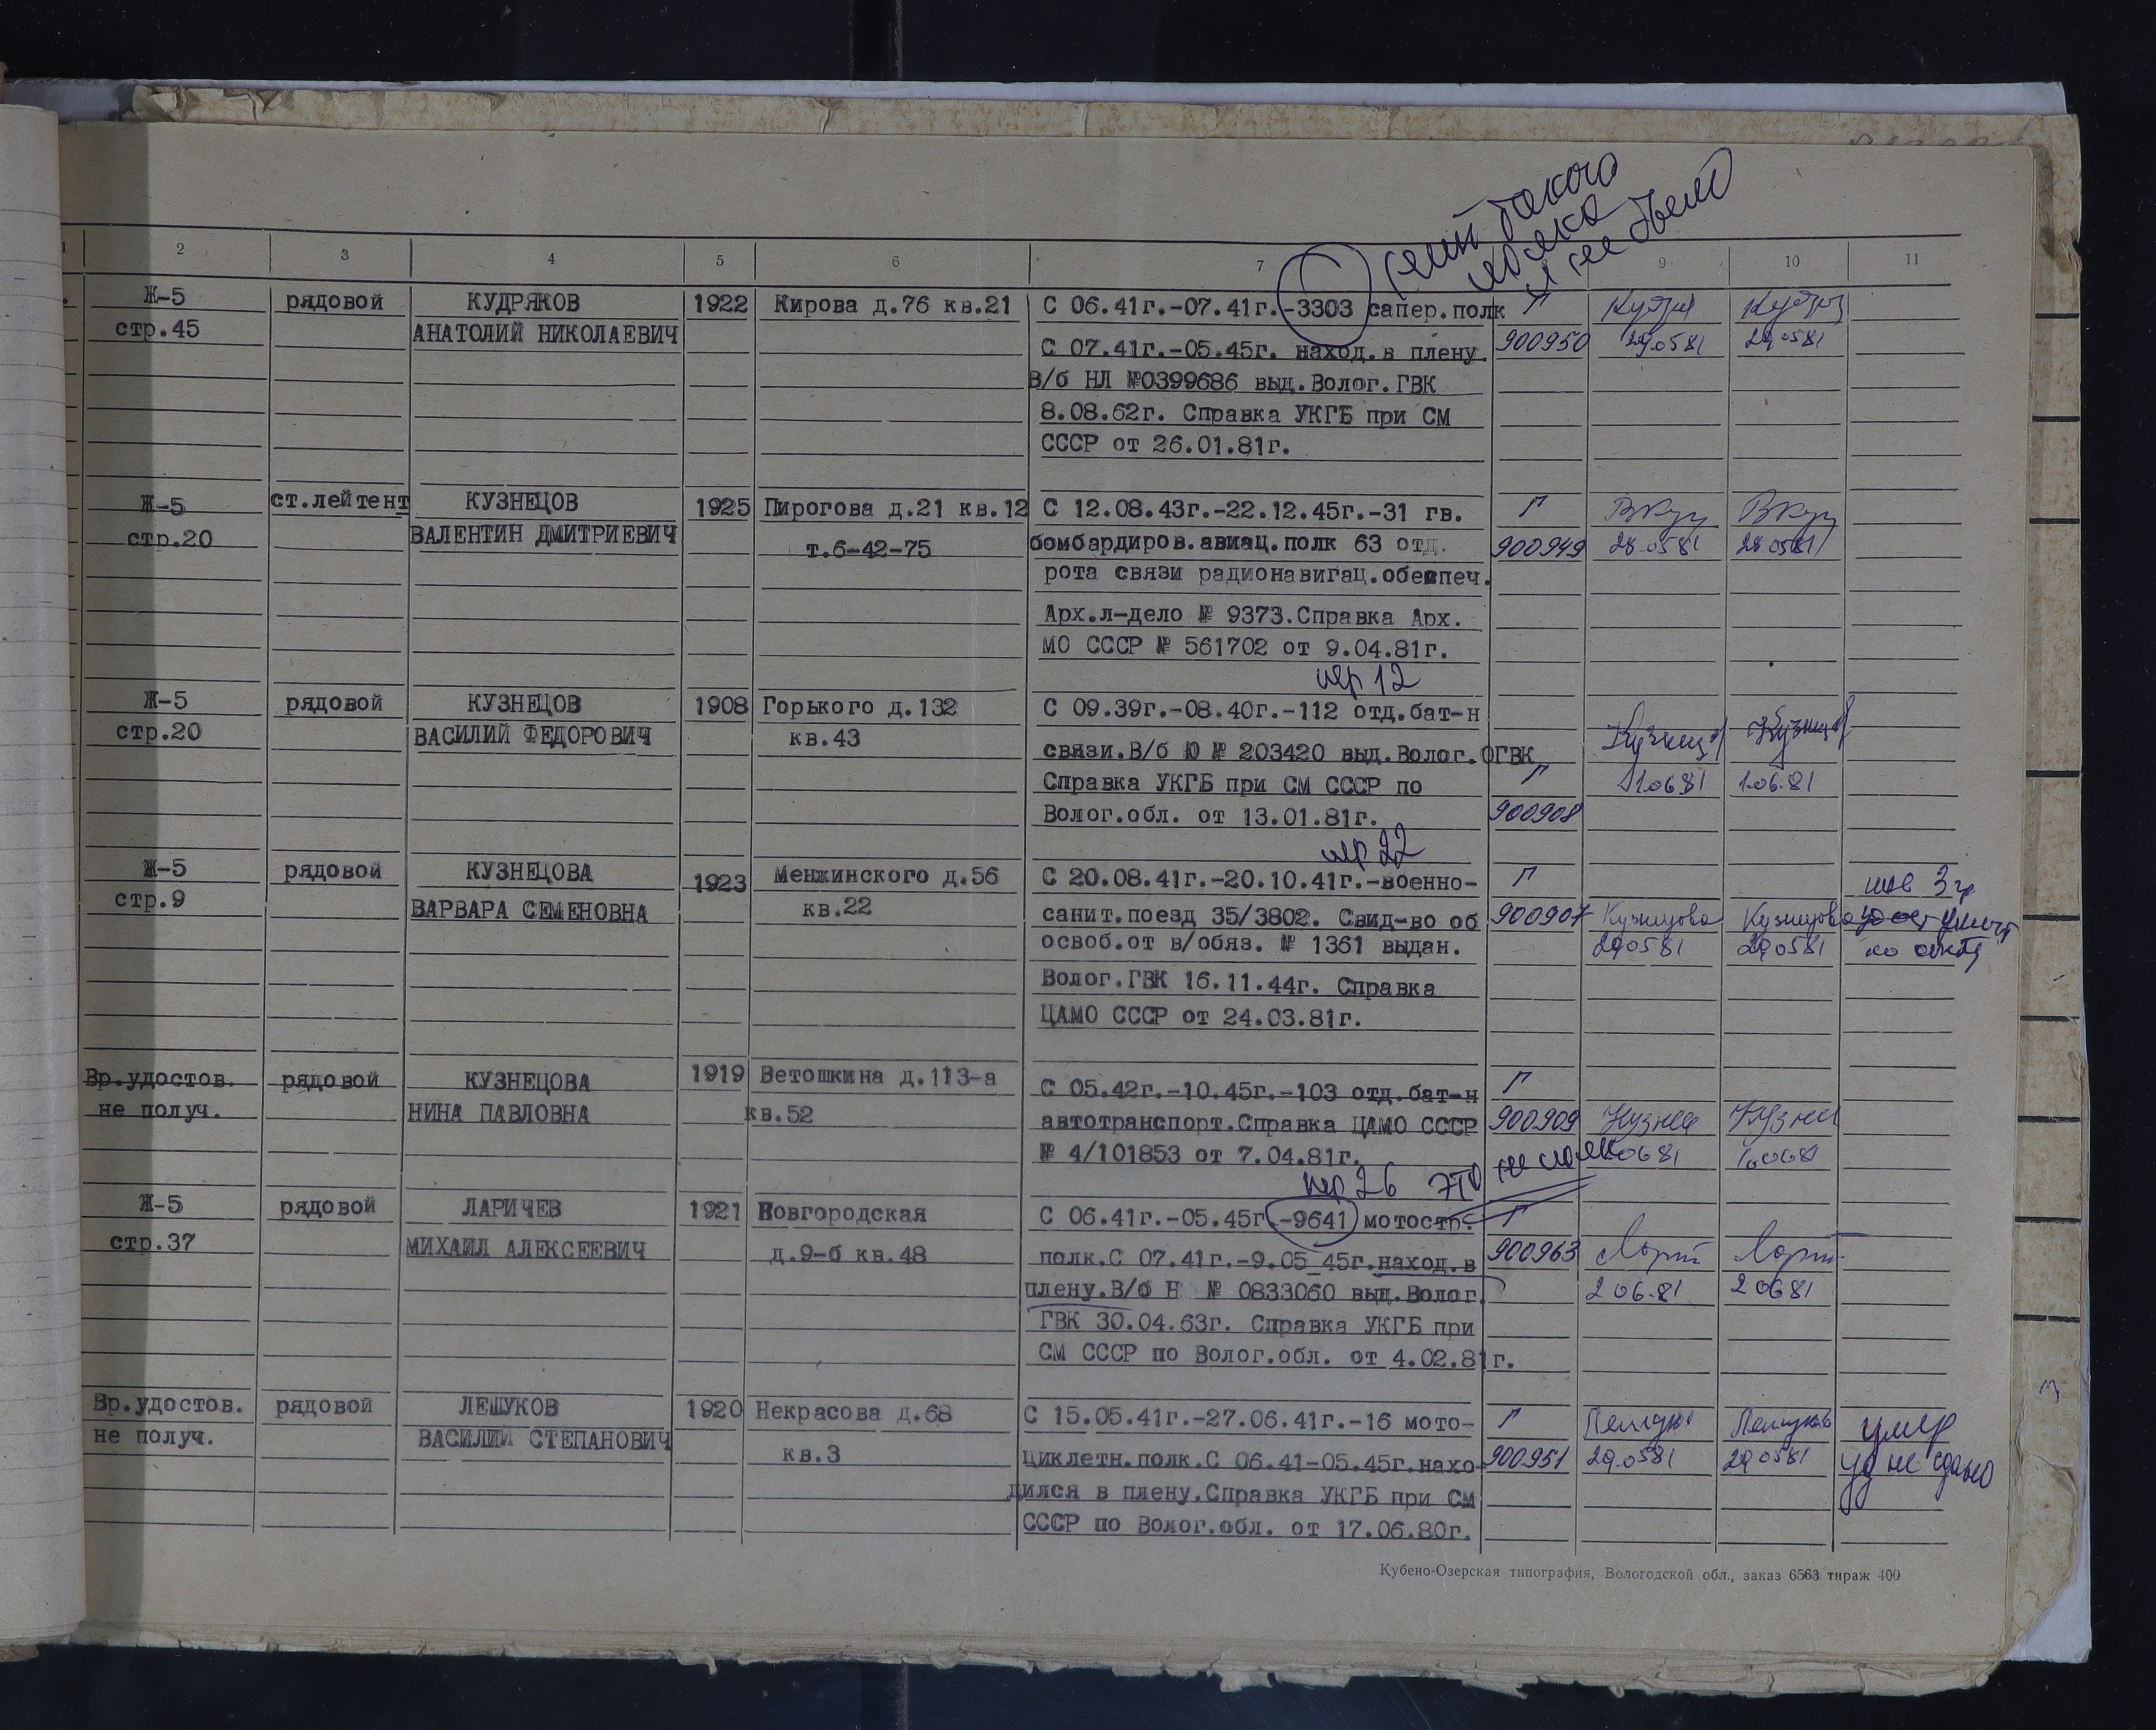 2 3 4 5 6 7 9 10 11
такого
полка
не было
Ж-5 рядовой КУДРЯКОВ 1922 Кирова д.76 кв.21 С 06.41г.-07.41г.-3303 сапер.полк Г
стр.45 АНАТОЛИЙ НИКОЛАЕВИЧ 900950 29.0581 29.0581
С 07.41г.-05.45г. наход.в плену.
В/б НЛ №0399686 выд.Волог.ГВК
8.08.62г. Справка УКГБ при СМ
СССР от 26.01.81г.
Ж-5 ст.лейтент КУЗНЕЦОВ 1925 Пирогова д.21 кв.12 С 12.08.43г.-22.12.45г.-31 гв. Г
стр.20 ВАЛЕНТИН ДМИТРИЕВИЧ т.6-42-75 бомбардиров.авиац.полк 63 отд. 900949 28.0581 28.0581
рота связи радионавигац.обеспеч.
Арх.л-дело № 9373.Справка Арх.
МО СССР № 561702 от 9.04.81г.
пер 12
Ж-5 рядовой КУЗНЕЦОВ 1908 Горького д.132 С 09.39г.-08.40г.-112 отд.бат-н
стр.20 ВАСИЛИЙ ФЕДОРОВИЧ кв.43 связи.В/б Ю № 203420 выд.Волог.ОГВК Кузнецов Кузнецов
Справка УКГБ при СМ СССР по Г 1.0681 1.06.81
Волог.обл. от 13.01.81г. 900908
пер 22
Ж-5 рядовой КУЗНЕЦОВА 1923 Менжинского д.56 С 20.08.41г.-20.10.41г.-военно- Г
стр.9 ВАРВАРА СЕМЕНОВНА кв.22 санит.поезд 35/3802. Свид-во об 900907 Кузнецова Кузнецова
освоб.от в/обяз. № 1361 выдан. 290581 290581
Волог.ГВК 16.11.44г. Справка
ЦАМО СССР от 24.03.81г.
Вр.удостов. рядовой КУЗНЕЦОВА 1919 Ветошкина д.113-а С 05.42г.-10.45г.-103 отд.бат-н Г
не получ. НИНА ПАВЛОВНА кв.52 автотранспорт.Справка ЦАМО СССР 900909
№ 4/101853 от 7.04.81г.
пер 26 это не
Ж-5 рядовой ЛАРИЧЕВ 1921 Новгородская С 06.41г.-05.45г.-9641 мотостр. Г
стр.37 МИХАИЛ АЛЕКСЕЕВИЧ д.9-б кв.48 полк.С 07.41г.-9.05 45г.наход.в 900963
плену.В/б Н № 0833060 выд.Волог. 206.81 20681
ГВК 30.04.63г. Справка УКГБ при
СМ СССР по Волог.обл. от 4.02.81г.
Вр.удостов. рядовой ЛЕШУКОВ 1920 Некрасова д.68 С 15.05.41г.-27.06.41г.-16 мото- Г Лешуков умер
не получ. ВАСИЛИЙ СТЕПАНОВИЧ кв.3 циклетн.полк.С 06.41-05.45г.нахо- 900951 29.0581 290581 уд не сдано
дился в плену.Справка УКГБ при СМ
СССР по Волог.обл. от 17.06.80г.
Кубено-Озерская типография, Вологодской обл., заказ 6563 тираж 400